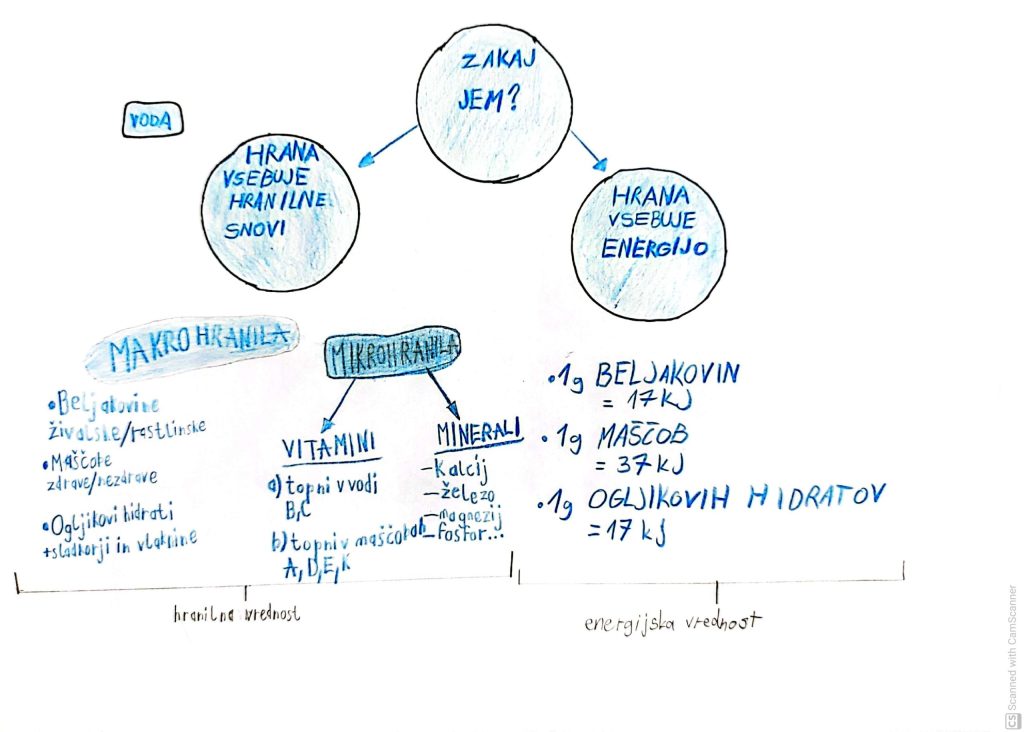 ZAKAJ
JEM?
VODA
HRANA
VSEBUJE
HRANILNE
SNOVI
HRANA
VSEBUJE
ENERGIJO
MAKROHRANILA
• Beljakovine
živalske/rastlinske
• Maščobe
zdrave/nezdrave
• Ogljikovi hidrati
+sladkorji in vlaknine
MIKROHRANILA
VITAMINI
a) topni v vodi
B,C
b) topni v maščobah
A,D,E,K
MINERALI
-Kalcij
-železo
-magnezij
-fosfor...
•1g BELJAKOVIN
= 17 kJ
•1g MAŠČOB
= 37 kJ
•1g OGLJIKOVIH HIDRATOV
= 17 kJ
hranilna vrednost
energijska vrednost
CS Scanned with CamScanner